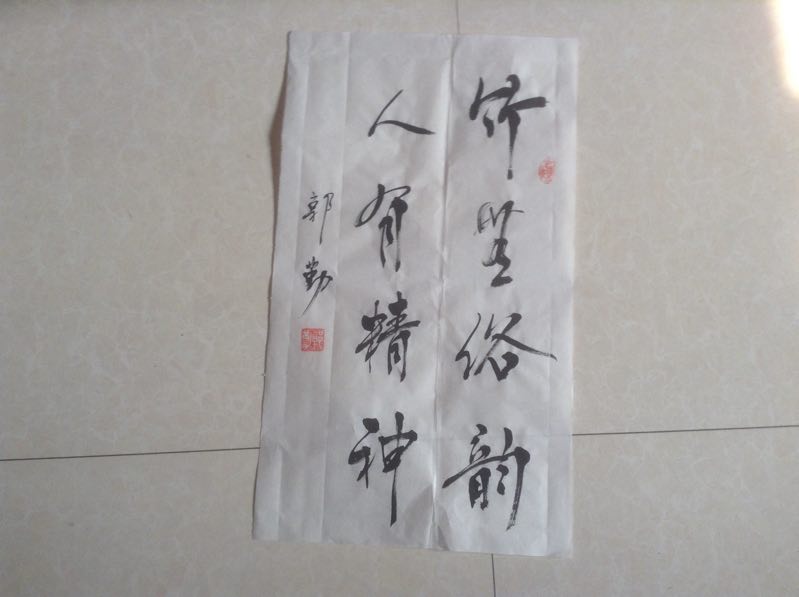 竹無俗韵
人有精神
郭勤